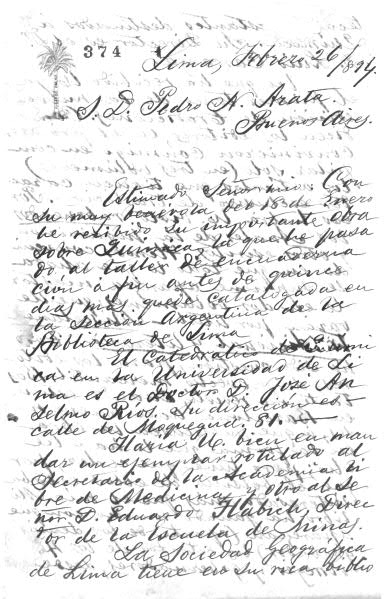 374
Lima, Febrero 26/894
S. D. Pedro N. Arata
Buenos Aires.
Estimado Señor mio: Con
su muy benévola del 18 de Enero
he recibido su importante obra
sobre Quimica, la que he pasa
do al taller de encuaderna
cion á fin antes de quince
dias mas quede catalogada en
la Seccion Argentina de la
Biblioteca de Lima
El Catedratico de Quimi
ca en la Universidad de Li
ma es el Doctor D. José An
selmo Rios. Su direccion es—
calle de Moquegua, 81.—
Haria U. bien en man
dar un ejemplar rotulado al
Secretario de la Academia li
bre de Medicina, y otro al se
ñor D. Eduardo Habich, Direc
tor de la Escuela de Minas.
La Sociedad geográfica
de Lima tiene en su rica biblio